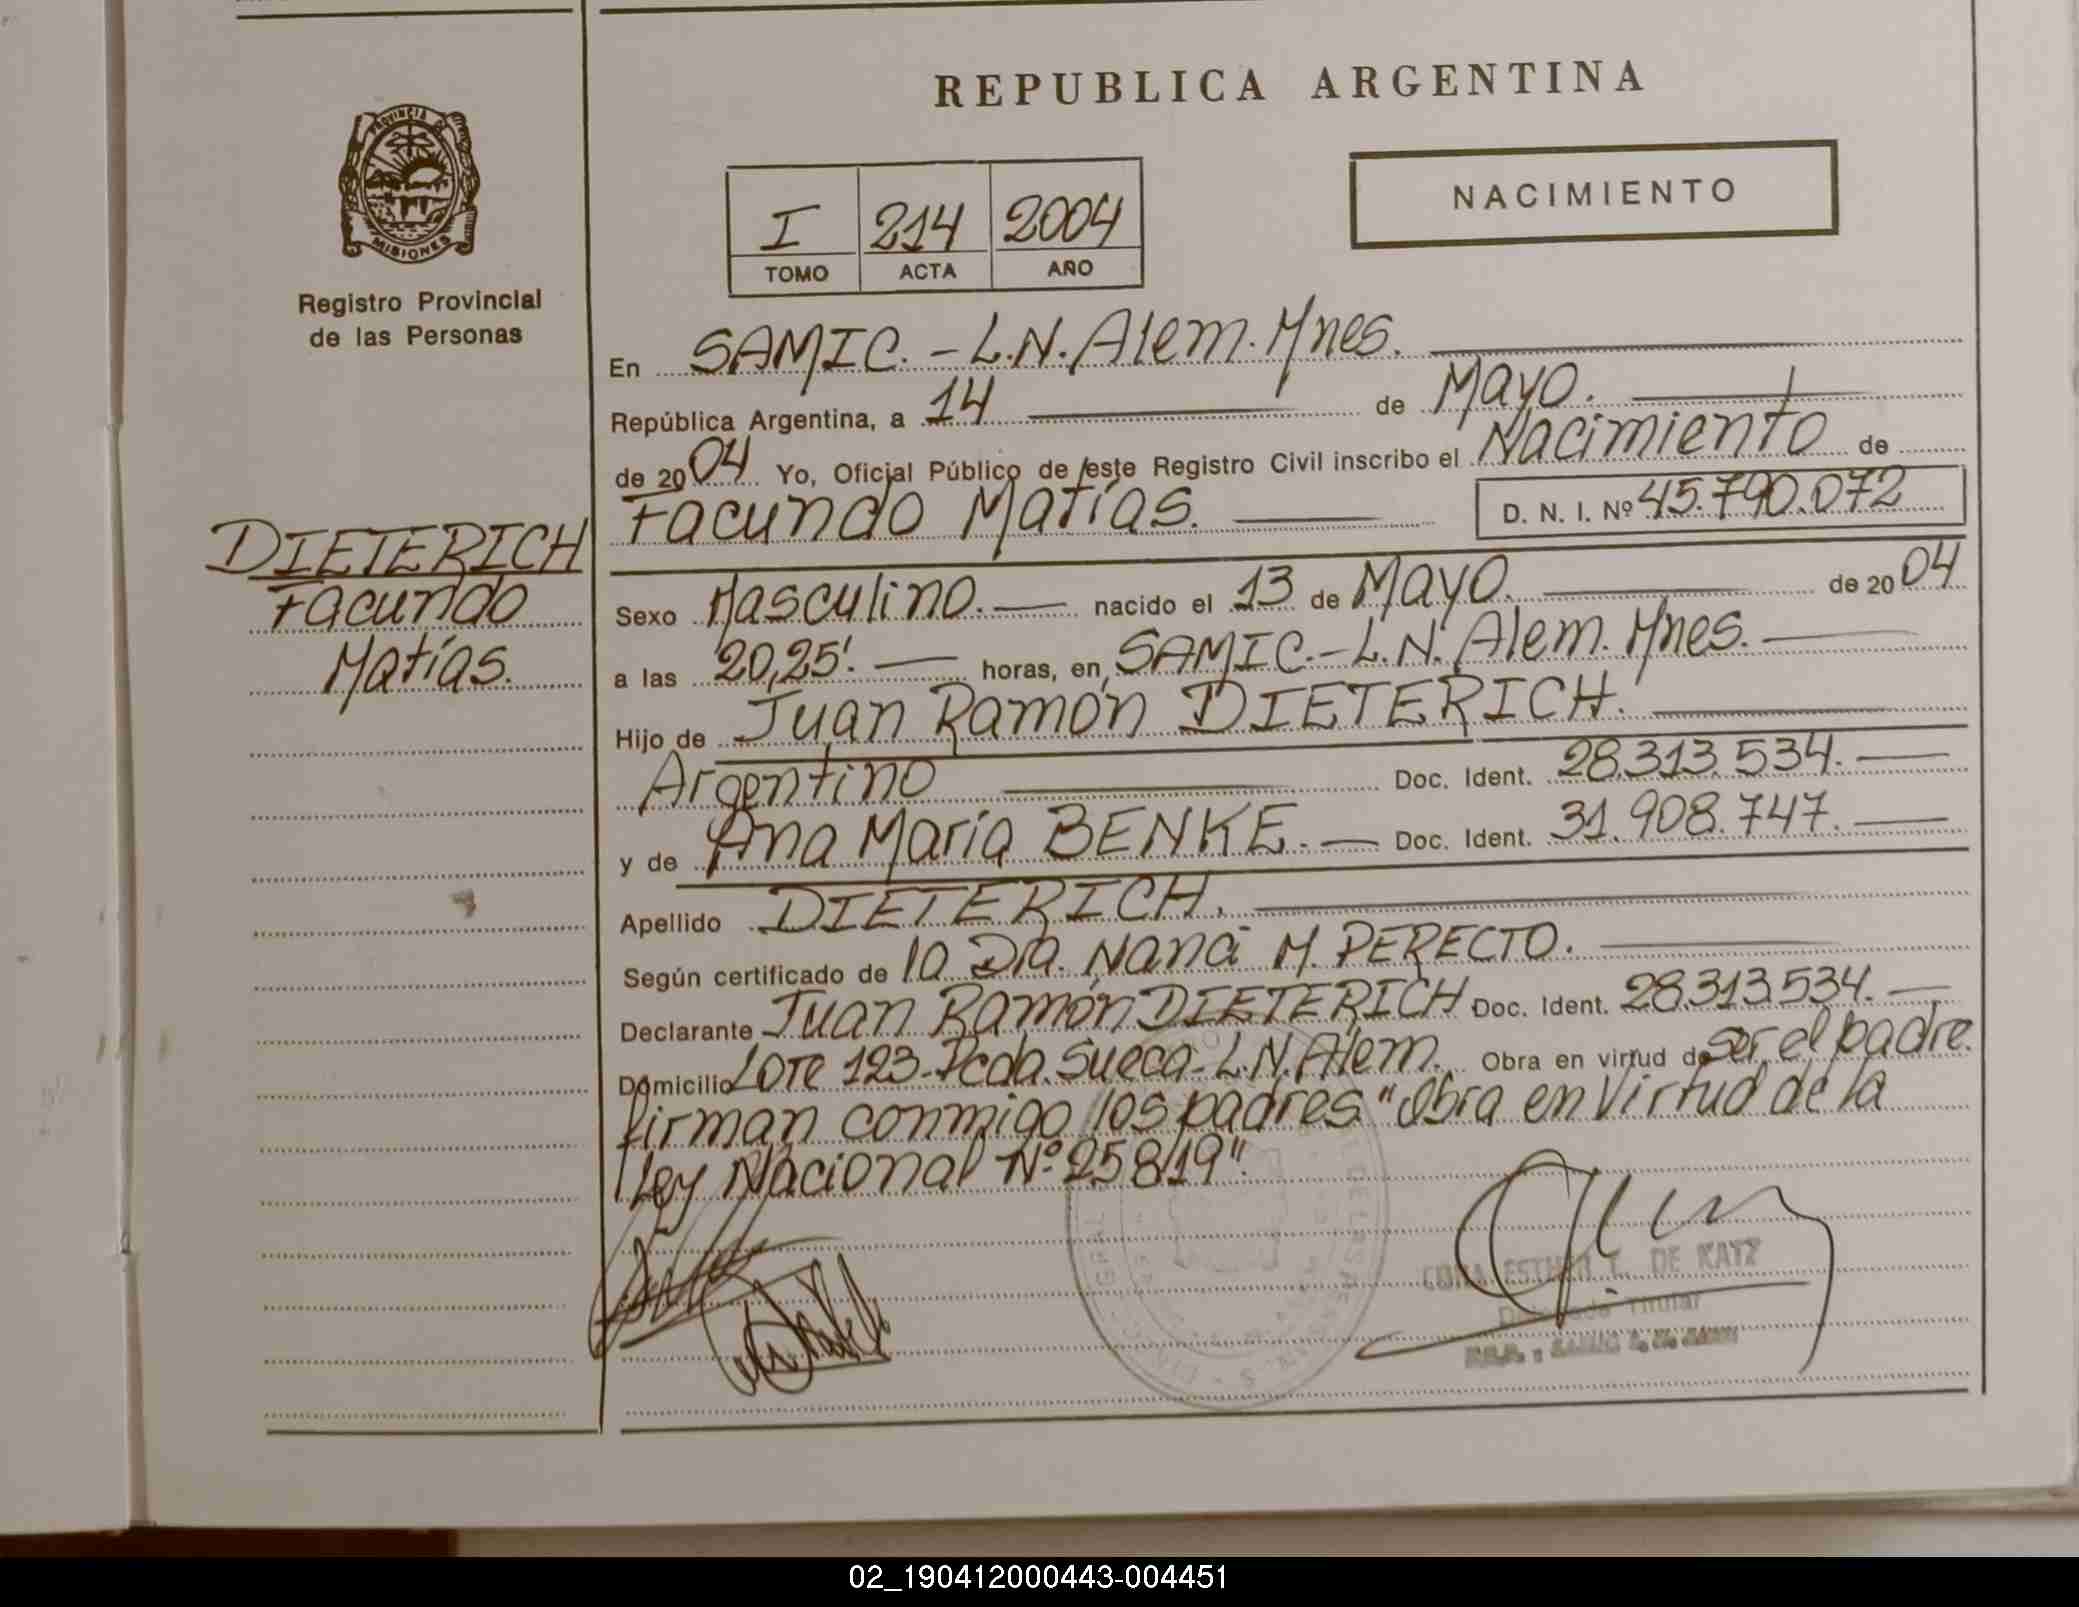 REPUBLICA ARGENTINA
PROVINCIA DE
MISIONES
Registro Provincial
de las Personas
NACIMIENTO
I 214 2004
TOMO ACTA AÑO
En SAMIC.-L.N.Alem.Mnes.
República Argentina, a 14 de Mayo.
de 2004 Yo, Oficial Público de este Registro Civil inscribo el Nacimiento de
Facundo Matías. D. N. I. Nº 45.790.072
DIETERICH
Facundo
Matías.
Sexo Masculino. nacido el 13 de Mayo. de 2004
a las 20,25'. horas, en SAMIC.-L.N. Alem. Mnes.
Hijo de Juan Ramón DIETERICH.
Argentino Doc. Ident. 28.313.534.
y de Ana María BENKE. Doc. Ident. 31.908.747.
Apellido DIETERICH.
Según certificado de la Dra. Naná M. PERECTO.
Declarante Juan Ramón DIETERICH Doc. Ident. 28.313.534.
Domicilio Lote 123-Pcda.Sueca-L.N.Alem. Obra en virtud de ser el padre.
firman conmigo los padres "Obra en Virtud de la
Ley Nacional Nº 25819".
ESTHER T. DE KATZ
Titular
02_190412000443-004451